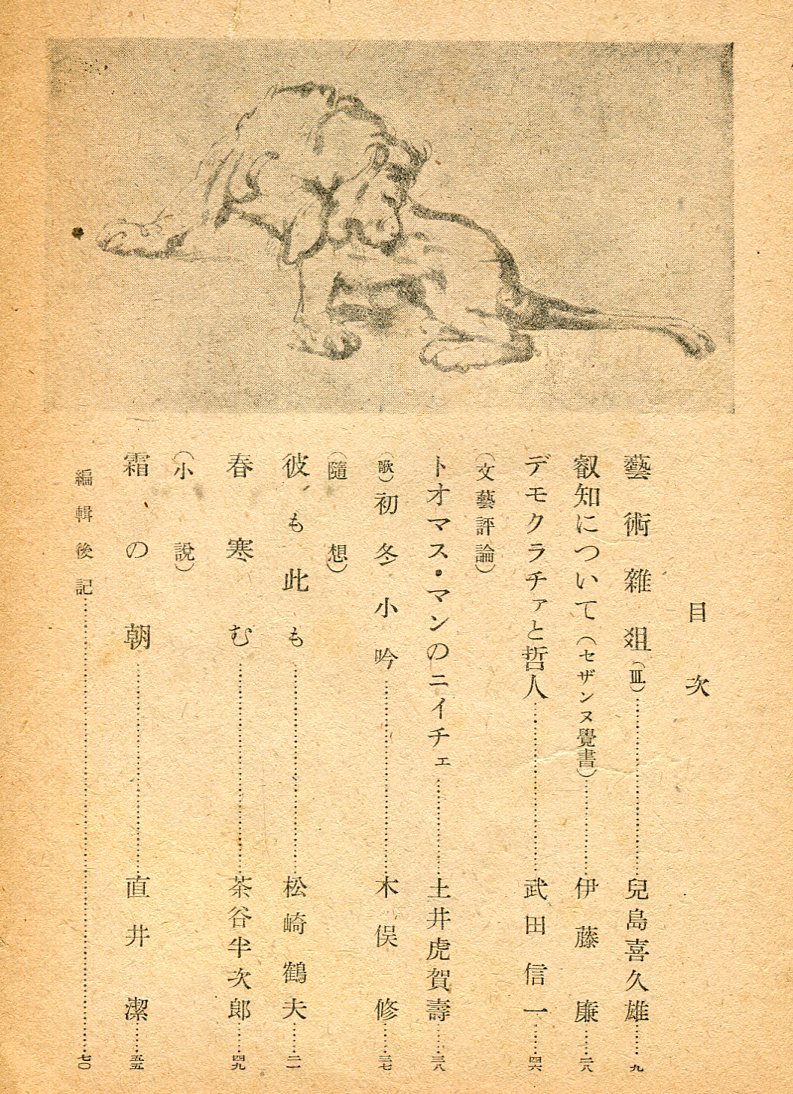 目次
藝術雜爼(Ⅲ)……兒島喜久雄……九
叡知について(セザンヌ覺書)……伊藤廉……二八
デモクラチァと哲人……武田信一……四六
(文藝評論)
トオマス・マンのニイチェ……土井虎賀壽……三八
(歌)初冬小吟……木俣修……三七
(隨想)
彼も此も……松崎鶴夫……二一
春寒む……茶谷半次郎……四九
(小說)
霜の朝……直井潔……五五
編輯後記……七〇